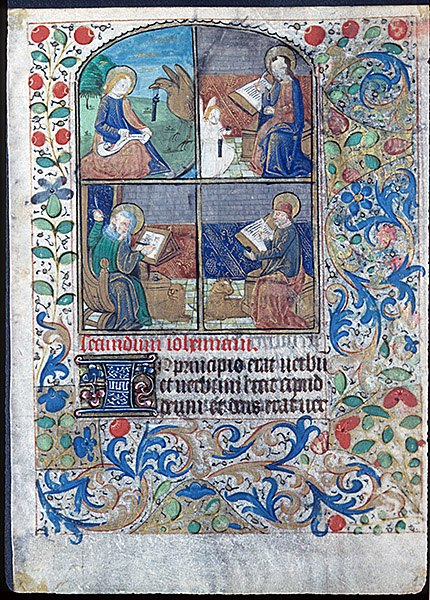 Secundum iohannem.
IN principio erat uerbū
et uerbū erat apud
deum et deus erat uer